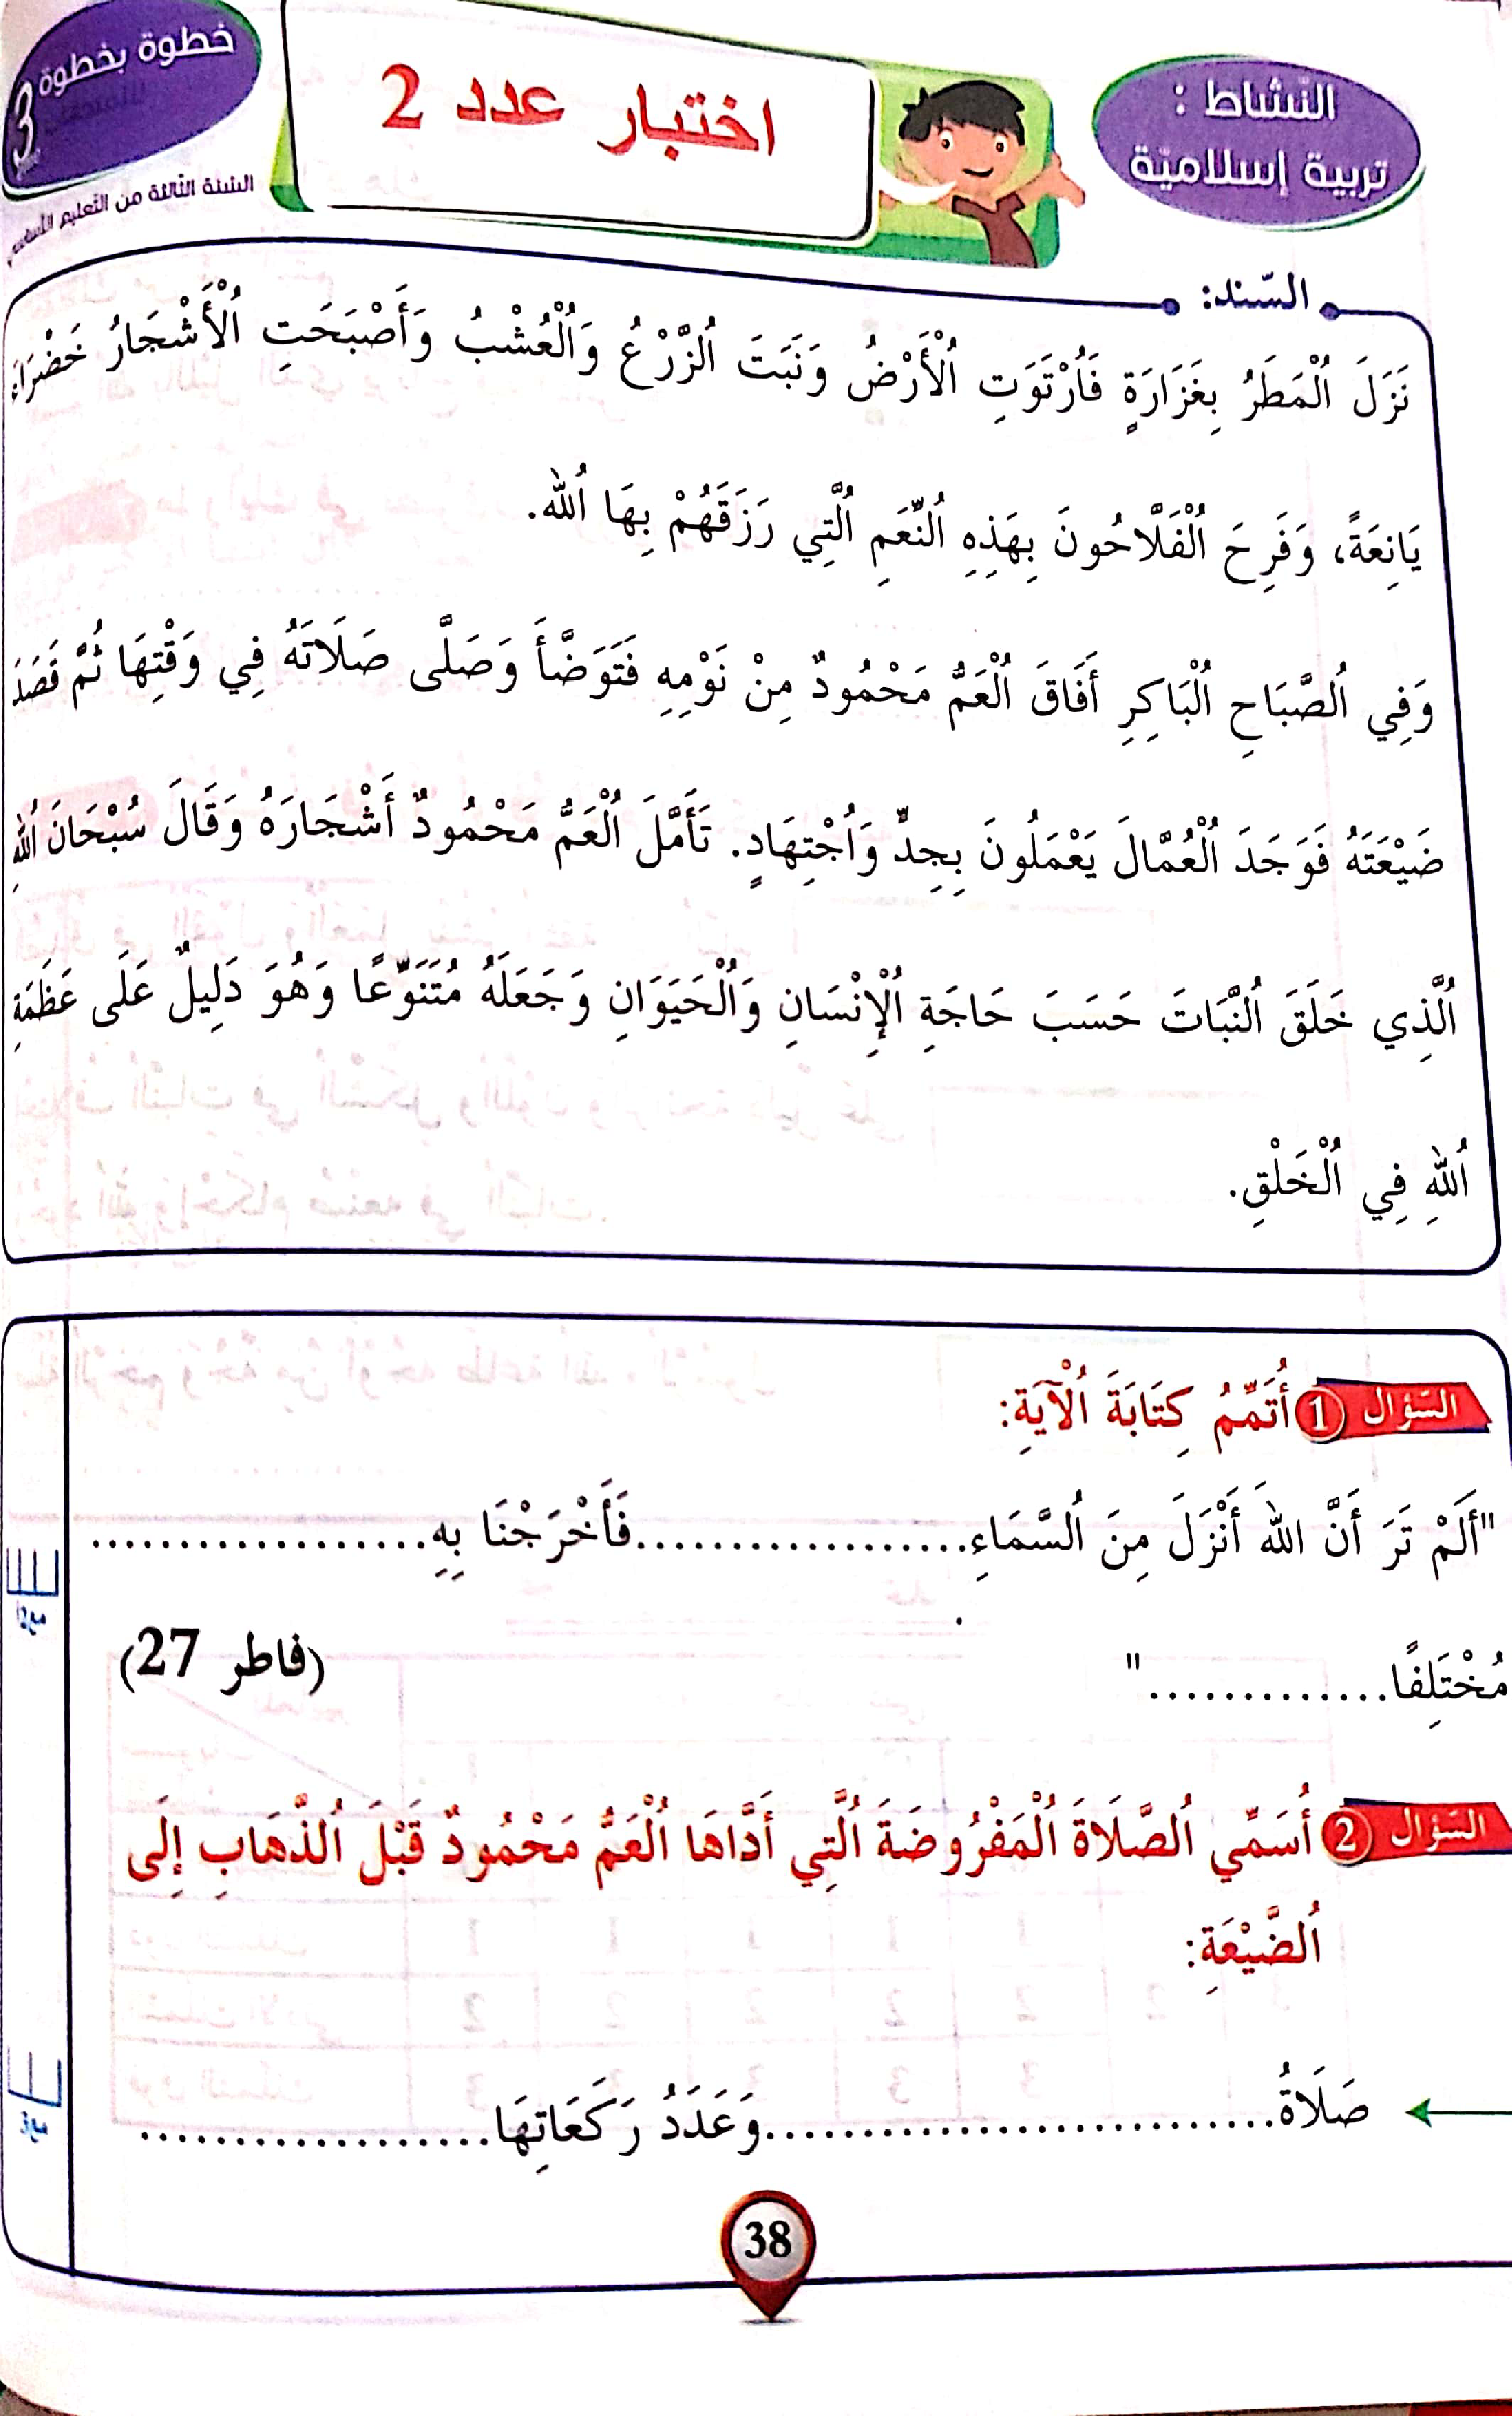 النّشاط :
تربية إسلاميّة
اختبار عدد 2
خطوة بخطوة
3
السّنة الثّالثة من التّعليم الأساسي
السّند:
نَزَلَ ٱلْمَطَرُ بِغَزَارَةٍ فَٱرْتَوَتِ ٱلْأَرْضُ وَنَبَتَ ٱلزَّرْعُ وَٱلْعُشْبُ وَأَصْبَحَتِ ٱلْأَشْجَارُ خَضْرَاءَ
يَانِعَةً، وَفَرِحَ ٱلْفَلَّاحُونَ بِهَذِهِ ٱلنِّعَمِ ٱلَّتِي رَزَقَهُمْ بِهَا ٱلله.
وَفِي ٱلصَّبَاحِ ٱلْبَاكِرِ أَفَاقَ ٱلْعَمُّ مَحْمُودٌ مِنْ نَوْمِهِ فَتَوَضَّأَ وَصَلَّى صَلَاتَهُ فِي وَقْتِهَا ثُمَّ قَصَدَ
ضَيْعَتَهُ فَوَجَدَ ٱلْعُمَّالَ يَعْمَلُونَ بِجِدٍّ وَٱجْتِهَادٍ. تَأَمَّلَ ٱلْعَمُّ مَحْمُودٌ أَشْجَارَهُ وَقَالَ سُبْحَانَ ٱللهِ
ٱلَّذِي خَلَقَ ٱلنَّبَاتَ حَسَبَ حَاجَةِ ٱلْإِنْسَانِ وَٱلْحَيَوَانِ وَجَعَلَهُ مُتَنَوِّعًا وَهُوَ دَلِيلٌ عَلَى عَظَمَةِ
ٱللهِ فِي ٱلْخَلْقِ.
السّؤال 1 أُتَمِّمُ كِتَابَةَ ٱلْآيَةِ:
"أَلَمْ تَرَ أَنَّ اللهَ أَنْزَلَ مِنَ ٱلسَّمَاءِ...................فَأَخْرَجْنَا بِهِ...................
مُخْتَلِفًا.............." (فاطر 27)
مع1
السّؤال 2 أُسَمِّي ٱلصَّلَاةَ ٱلْمَفْرُوضَةَ ٱلَّتِي أَدَّاهَا ٱلْعَمُّ مَحْمُودٌ قَبْلَ ٱلذَّهَابِ إِلَى
ٱلضَّيْعَةِ:
صَلَاةُ...........................وَعَدَدُ رَكَعَاتِهَا...................
38